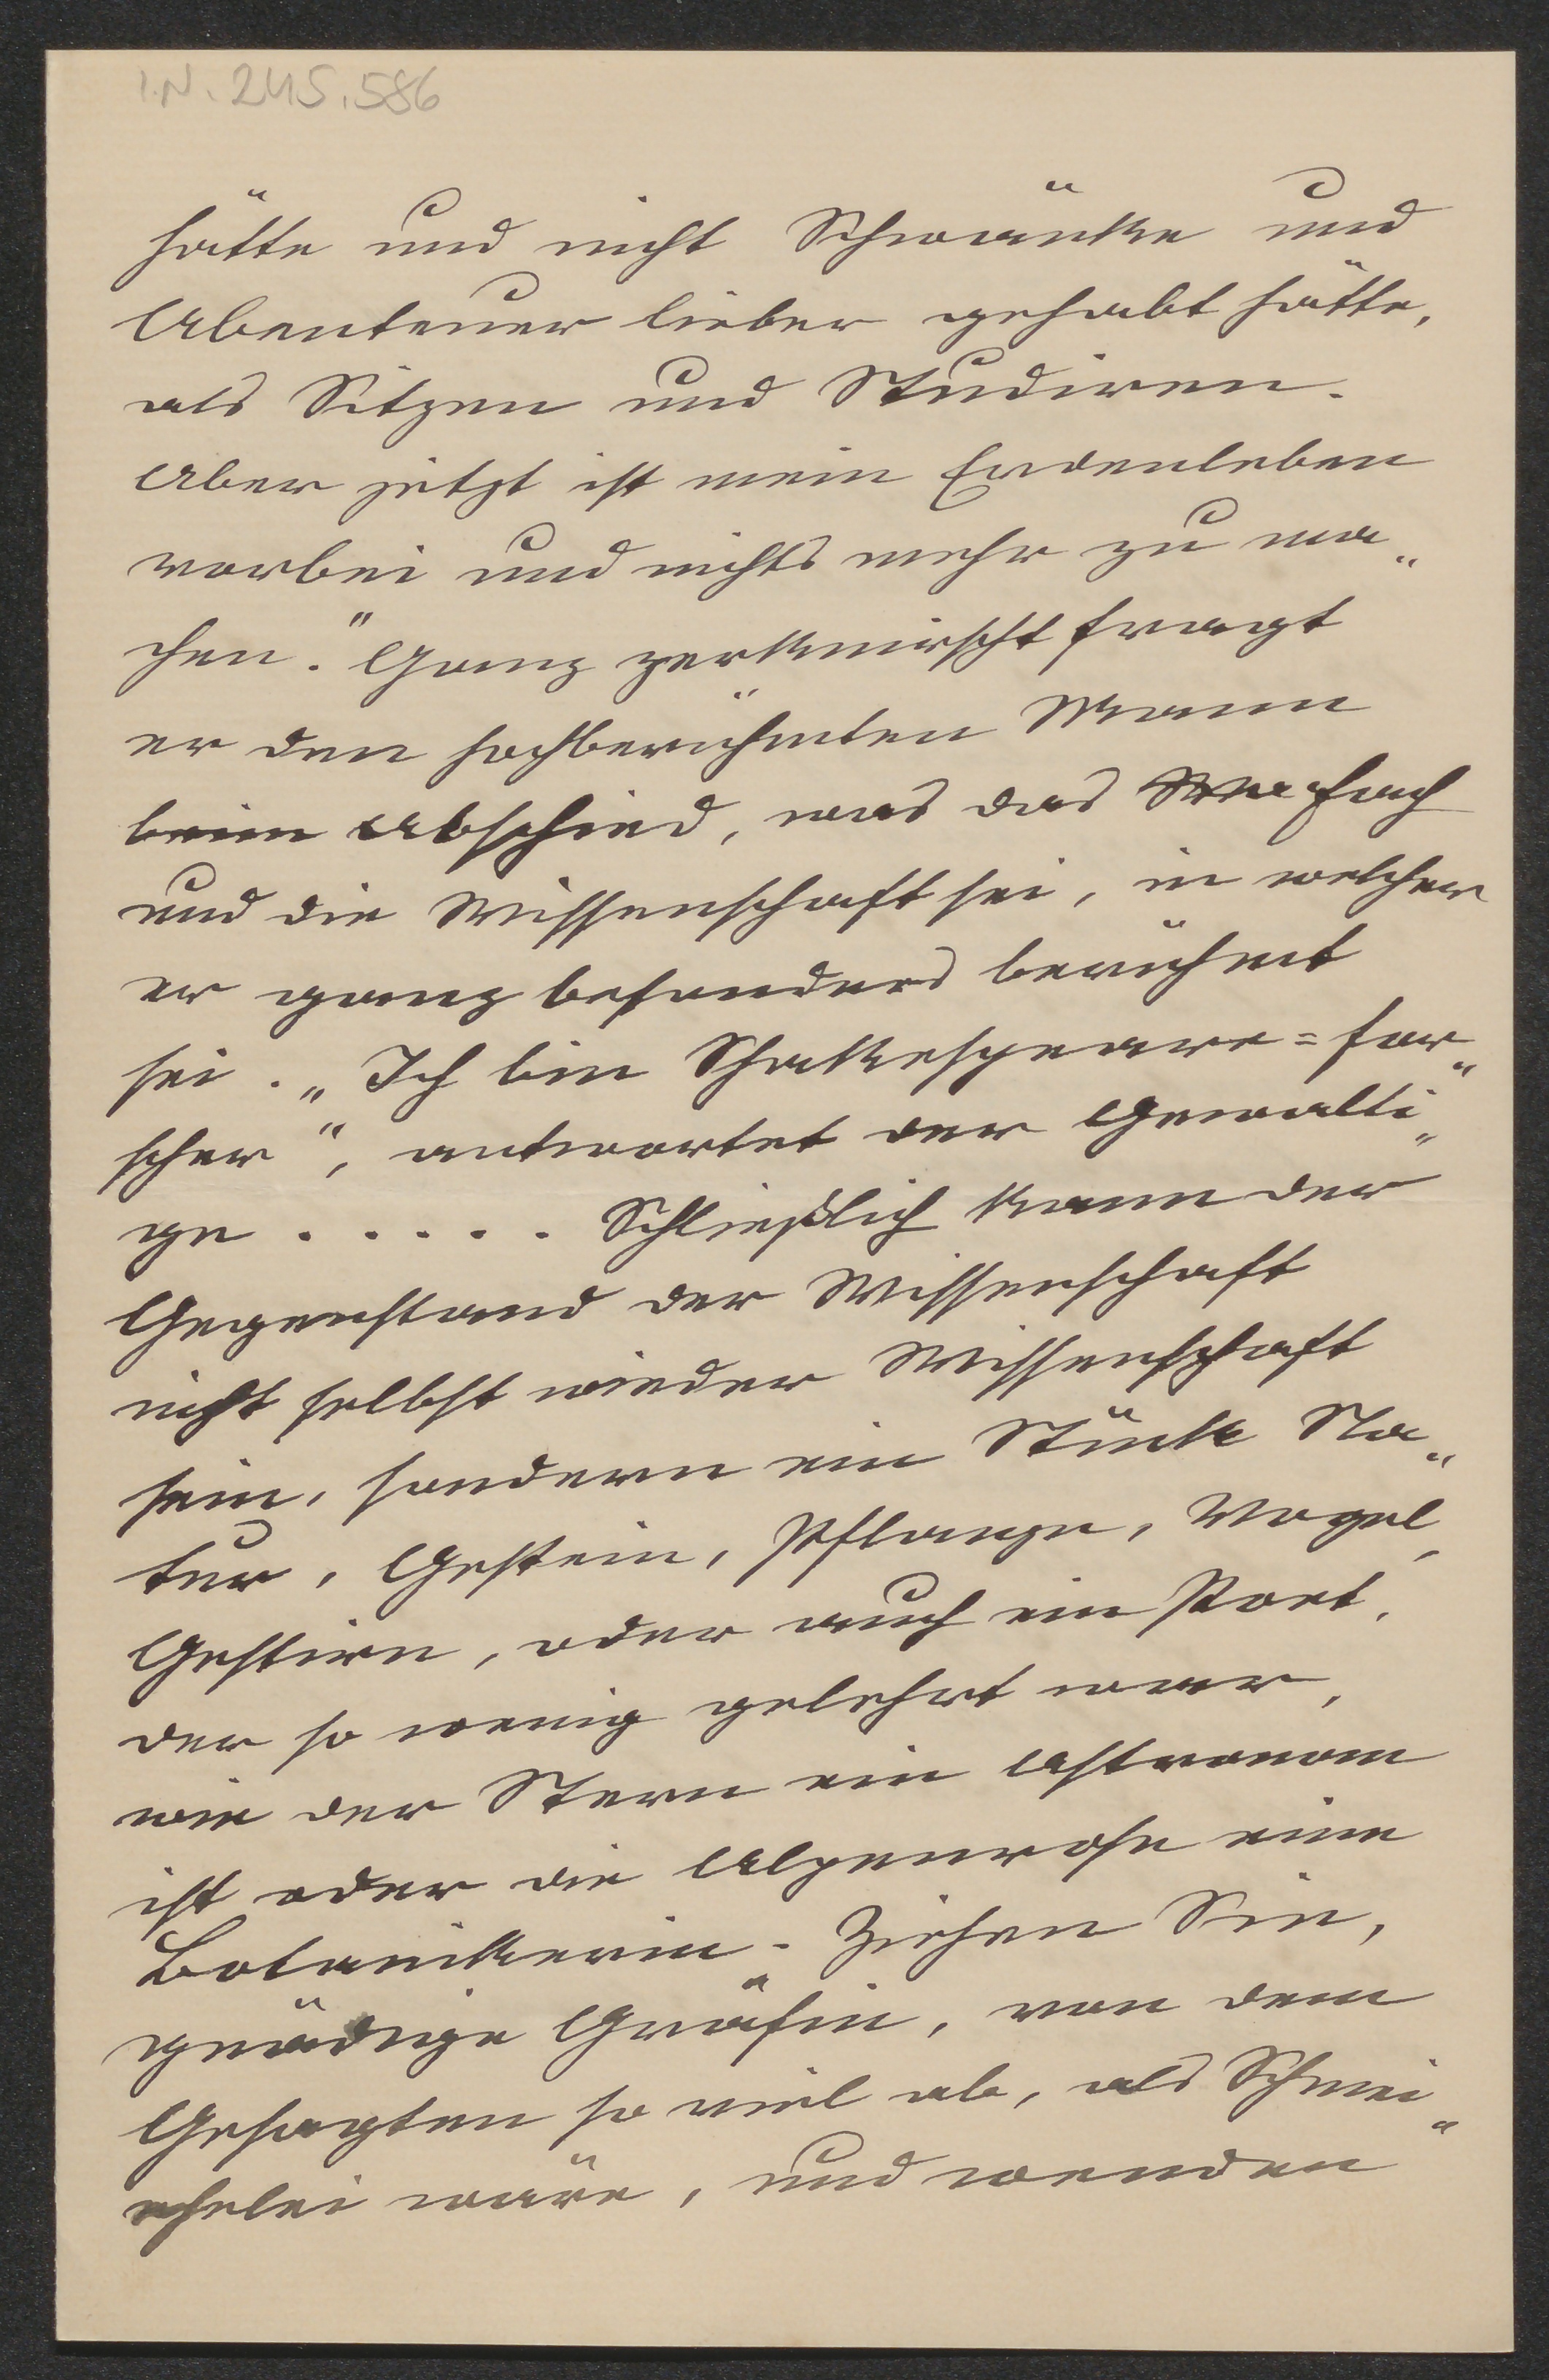 I.N. 245.586
hätte und nicht Schwänke und
Abenteuer lieber gehabt hätte,
als Sitzen und Studiren.
Aber jetzt ist mein Erdenleben
vorbei und nichts mehr zu ma„
chen." Ganz zerknirscht fragt
er den hochberühmten Mann
beim Abschied, was das Fach
und die Wissenschaft sei, in welcher
er ganz besonders berühmt
sei. „Ich bin Shakespeare=for„
scher", antwortet der Gewalti„
ge . . . . . Schließlich kann der
Gegenstand der Wissenschaft
nicht selbst wieder Wissenschaft
sein, sondern ein Stück Na„
tur, Gestein, Pflanze, Vogel,
Gestirn, oder auch ein Poet,
der so wenig gelehrt war,
wie der Stern ein Astronom
ist oder die Alpenrose eine
Botanikerin. Ziehen Sie,
gnädige Gräfin, von dem
Gesagten so viel ab, als Schmei„
chelei wäre, und wenden